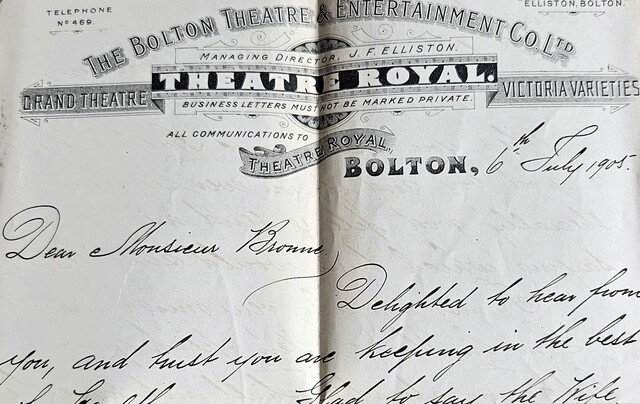 TELEPHONE
No 469.
ELLISTON, BOLTON.
THE BOLTON THEATRE & ENTERTAINMENT CO. LTD
MANAGING DIRECTOR, J. F. ELLISTON.
GRAND THEATRE
THEATRE ROYAL.
VICTORIA VARIETIES
BUSINESS LETTERS MUST NOT BE MARKED PRIVATE.
ALL COMMUNICATIONS TO
THEATRE ROYAL,
BOLTON, 6th July 1905.
Dear Monsieur
Delighted to hear from
you, and trust you are keeping in the best
Glad to say the Wife